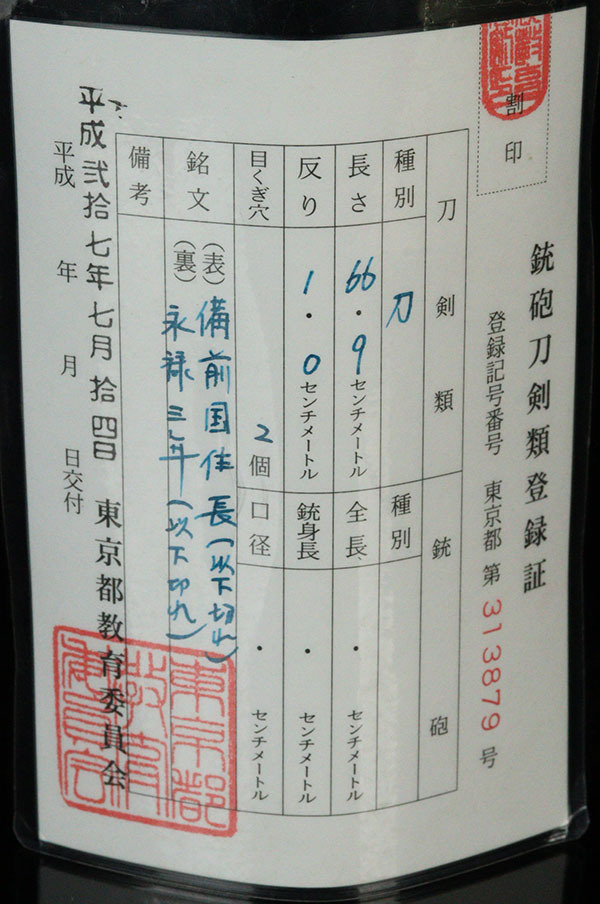 割印
銃砲刀剣類登録証
登録記号番号 東京都 第 313879 号
刀剣類 銃砲
種別 刀 種別
長さ 66.9センチメートル 全長 ・ センチメートル
反り 1.0センチメートル 銃身長 ・ センチメートル
目くぎ穴 2個 口径 ・ センチメートル
銘文 (表) 備前国住長(以下切れ)
(裏) 永禄三年(以下切れ)
備考
平成弐拾七年七月拾四日
平成 年 月 日交付
東京都教育委員会
東京都教育委員会